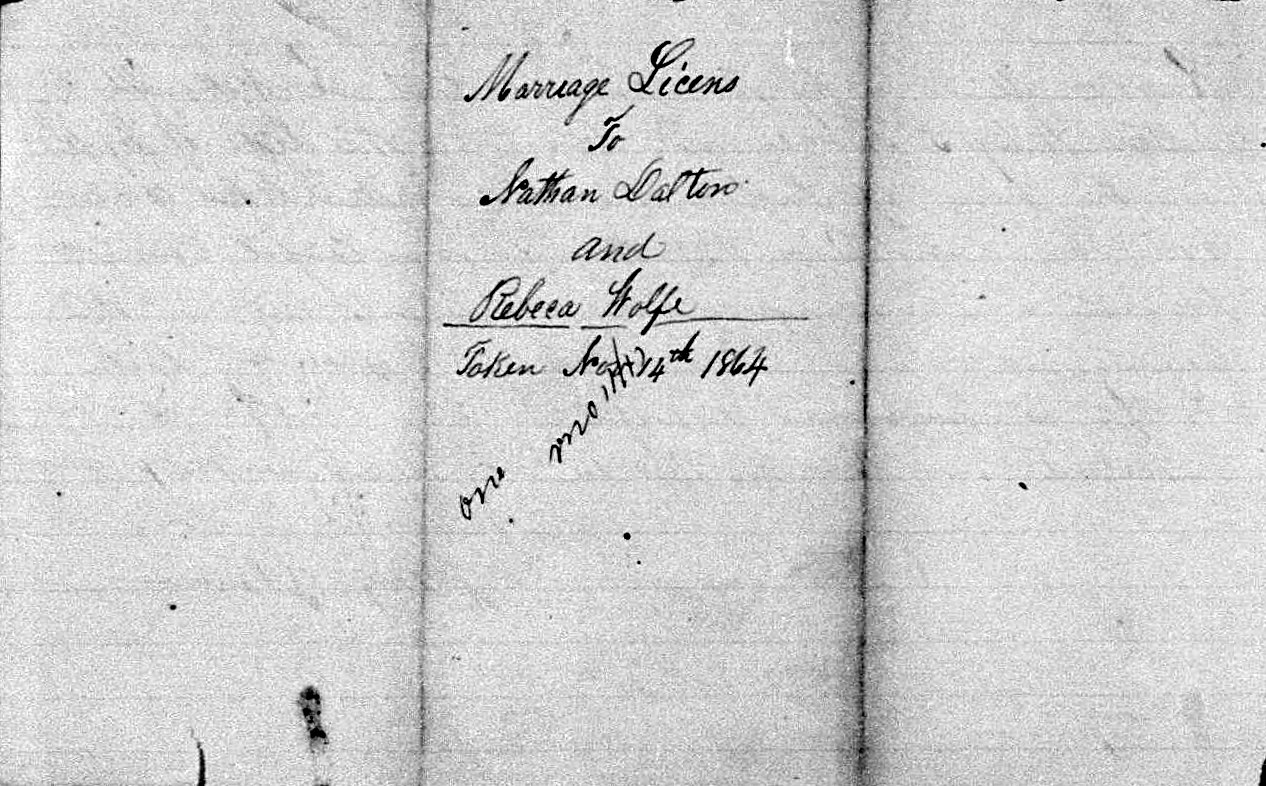 Marriage Licens
To
Nathan Dalton
and
Rebeca Wolfe
Taken Nov 14th 1864
one month